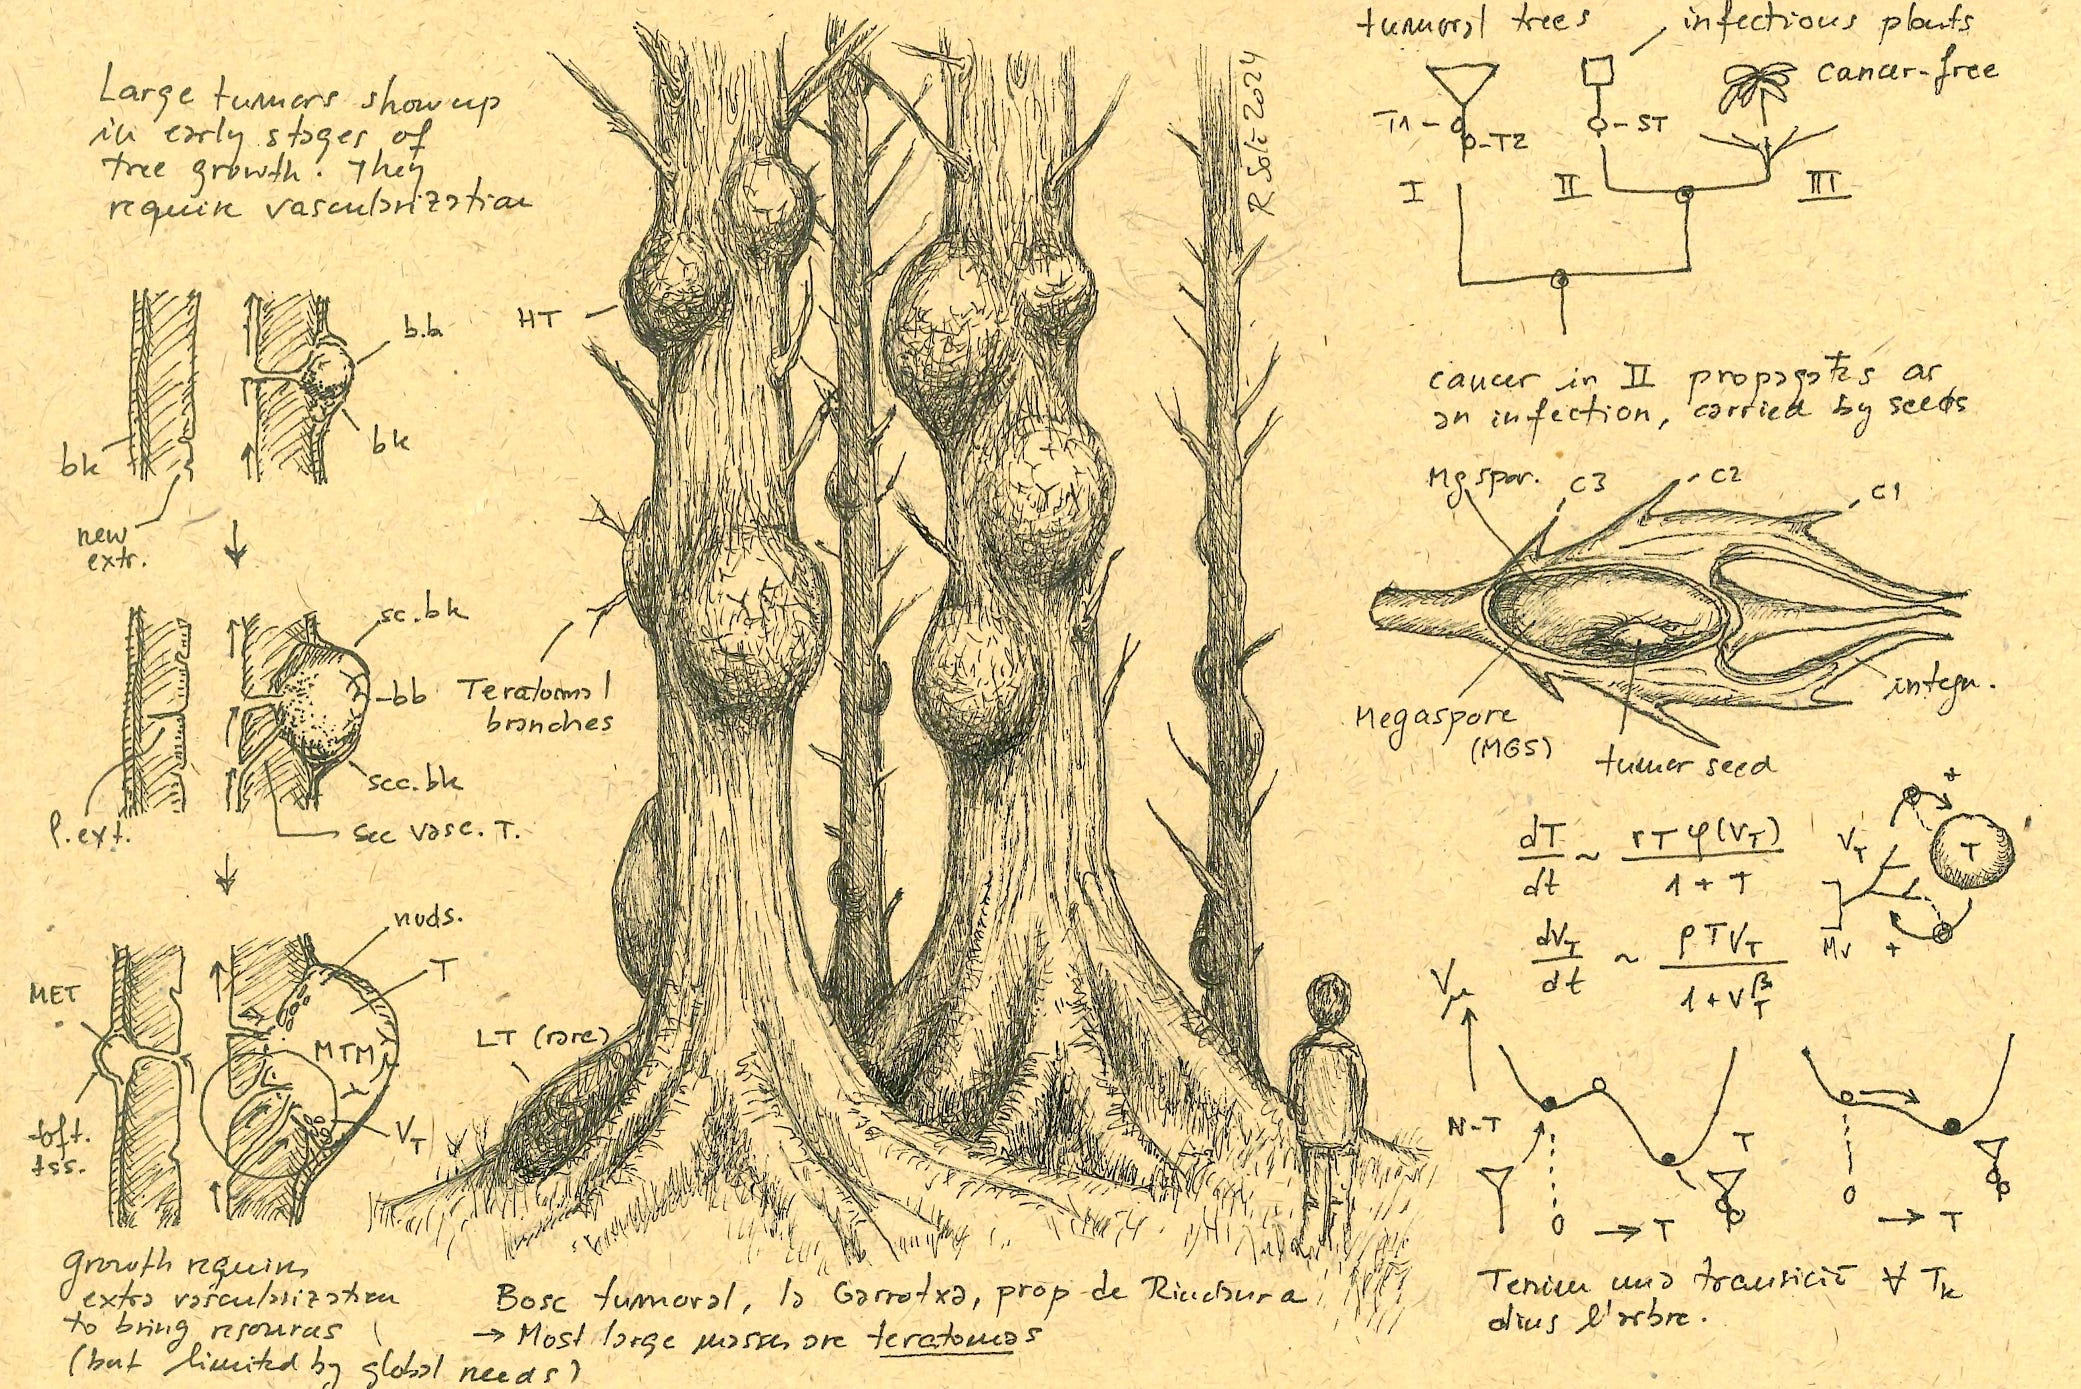 Large tumors show up
in early stages of
tree growth. They
require vascularization
b.b
bk
bk
new
extr.
sc.bk
bb
sec.bk
P.ext.
sec vasc. T.
nuds.
T
MET
MTM
V_T
tss.
growth requires
extra vascularization
to bring resources
(but limited by global needs)
HT
Teratomal
branches
LT (rare)
R Solé 2024
Bosc tumoral, la Garrotxa, prop de Riudaura
→ Most large masses are teratomas
tumoral trees
infectious plants
cancer-free
T1
T2
ST
I II III
cancer in II propagates as
an infection, carried by seeds
Mgspor. C3 C2 C1
integu.
Megaspore
(MGS)
tumor seed
dT/dt ~ r T φ(V_T) / 1 + T
dV_T/dt ~ ρ T V_T / 1 + V_T^β
V_T
T
Mv
+
+
V_μ
N-T
T
0 → T
0 → T
Tenim una transició ∀ T_k
dins l'arbre.